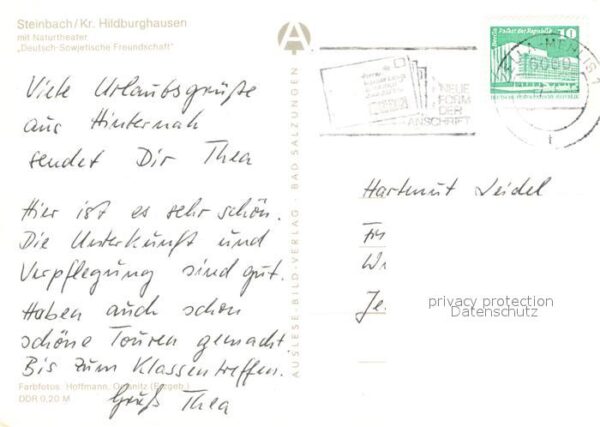 Steinbach/Kr. Hildburghausen
mit Naturtheater
„Deutsch-Sowjetische Freundschaft"
Viele Urlaubsgrüße
aus Hinternah
sendet Dir Thea
Hier ist es sehr schön.
Die Unterkunft und
Verpflegung sind gut.
Haben auch schon
schöne Touren gemacht
Bis zum Klassentreffen.
Gruß Thea
Farbfotos: Hoffmann,
DDR 0,20 M
AUSLESE-BILD-VERLAG - BAD SALZUNGEN
NEUE
FORM
DER
ANSCHRIFT
Berlin Palast der Republik
10
6060
Hartmut Seidel
privacy protection
Datenschutz